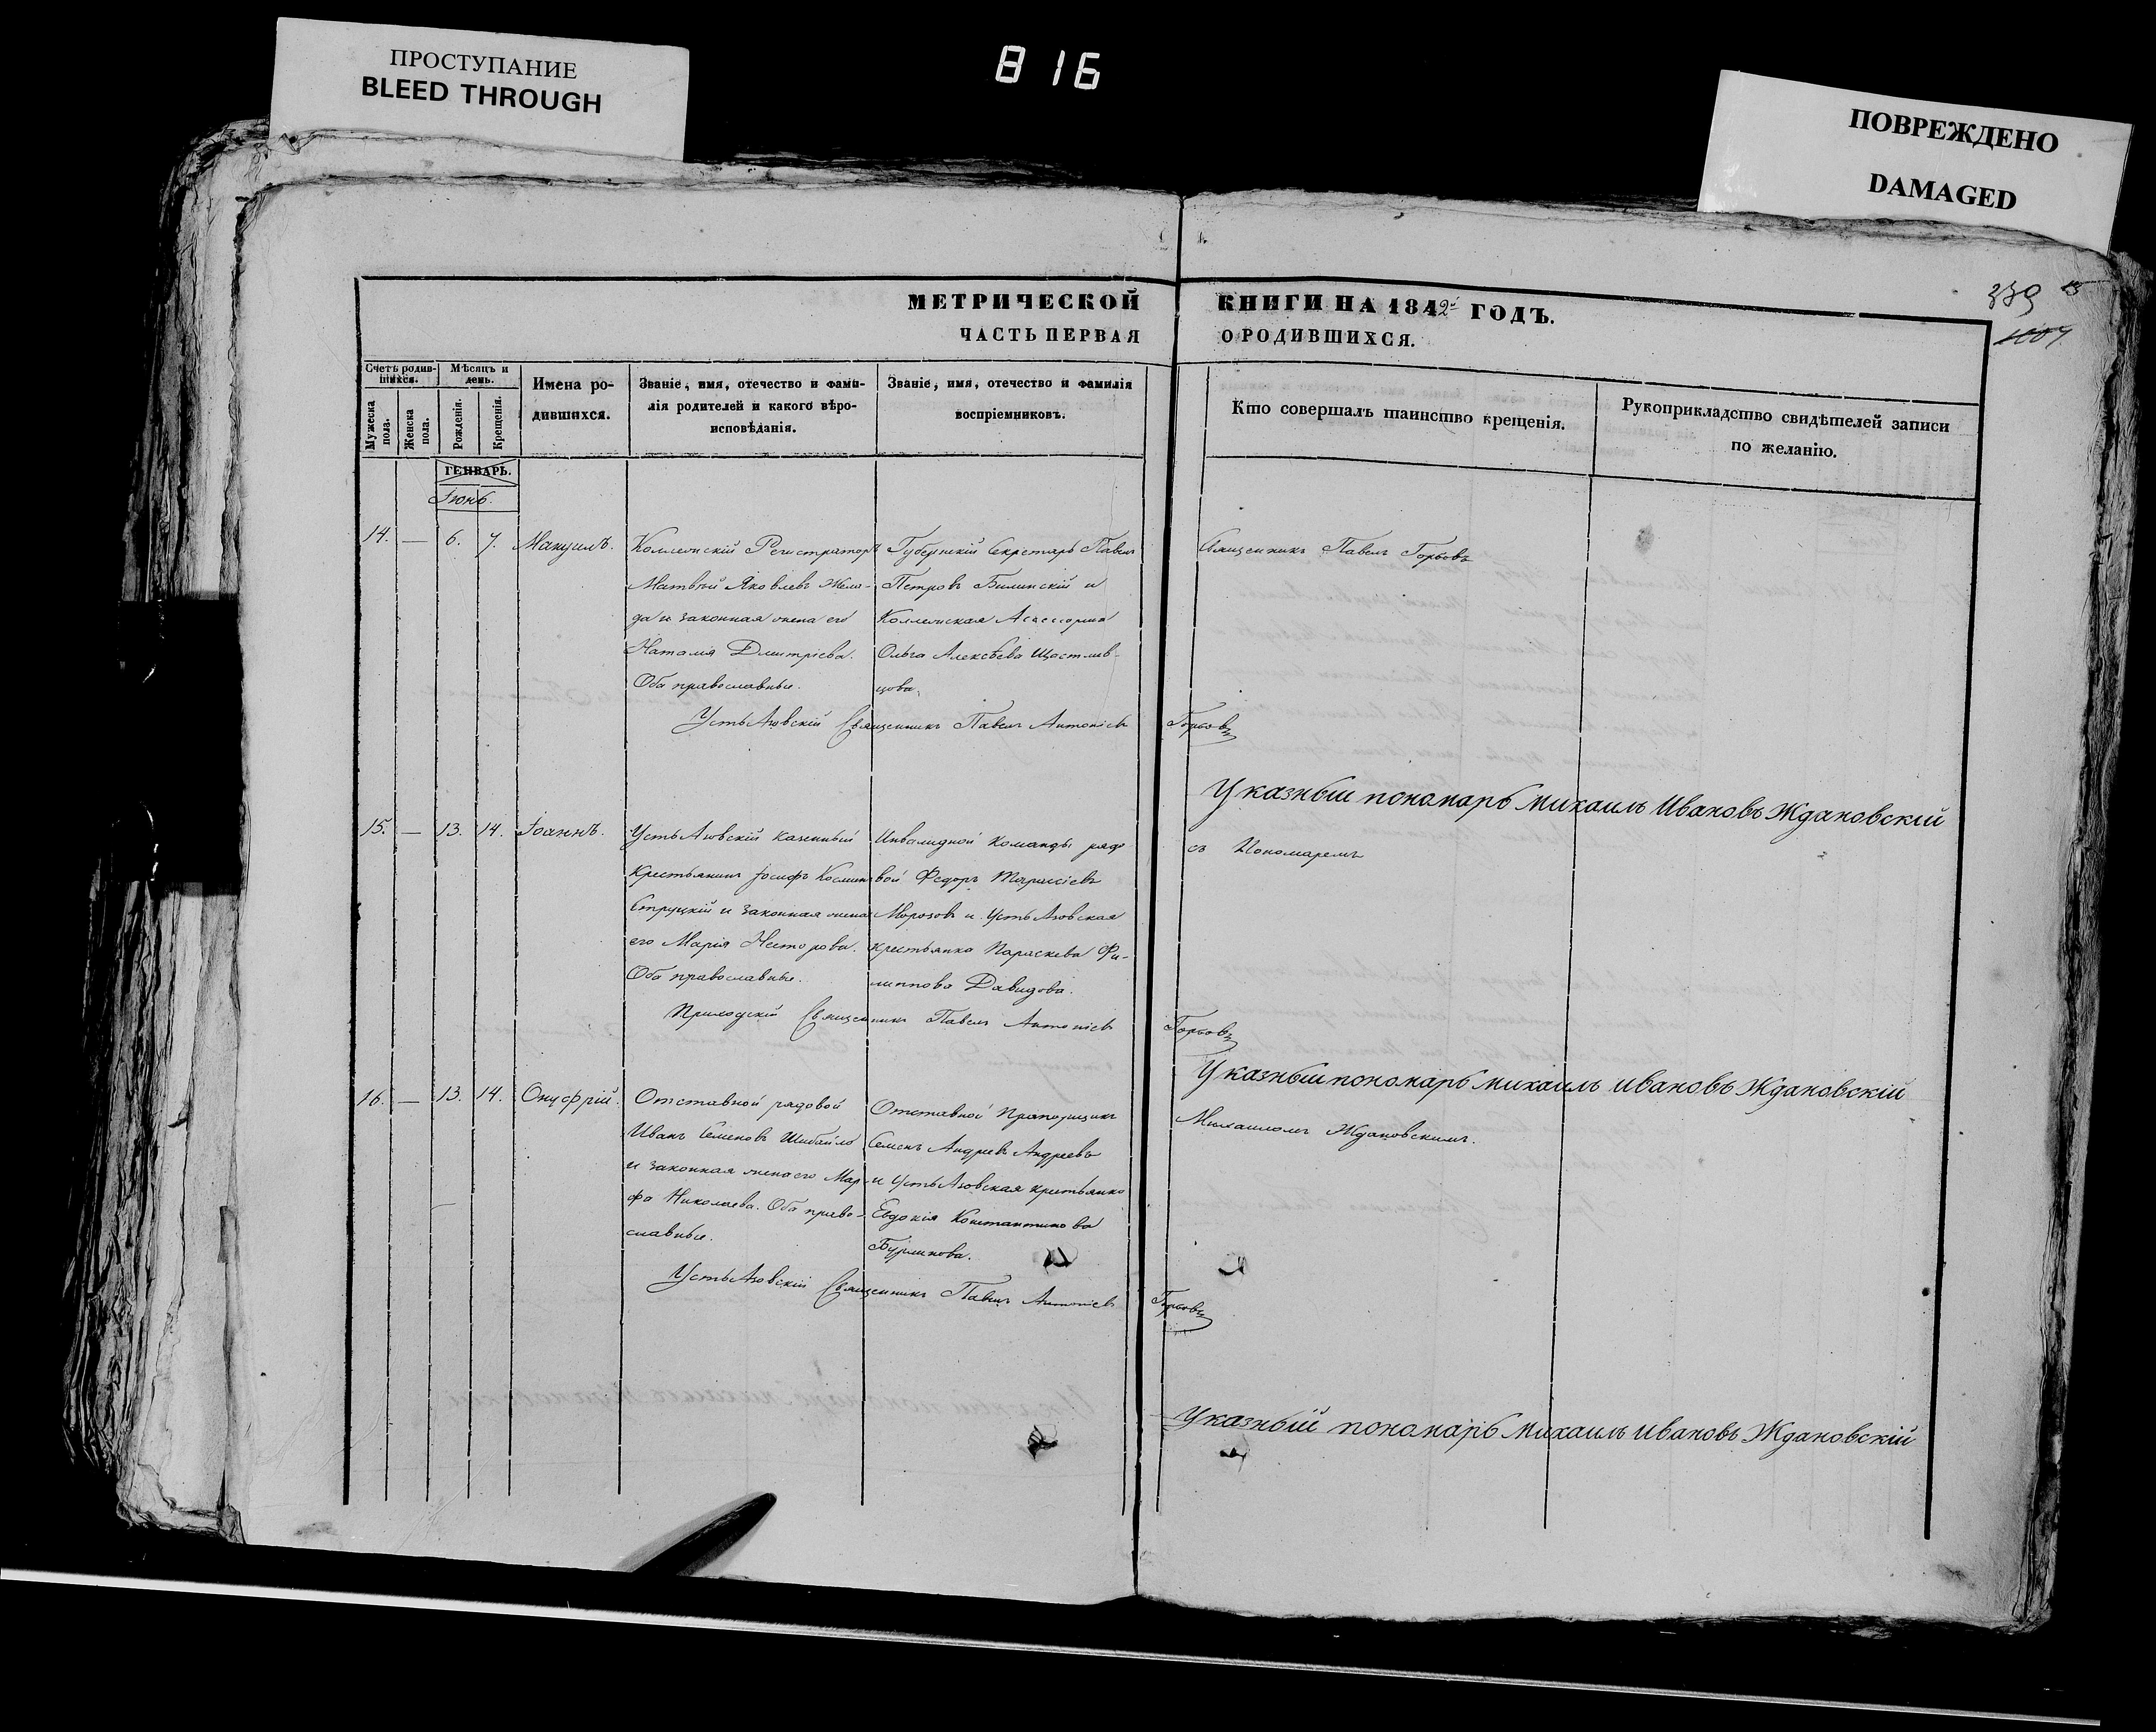 ПРОСТУПАНИЕ
BLEED THROUGH
816
ПОВРЕЖДЕНО
DAMAGED
339
МЕТРИЧЕСКОЙ КНИГИ НА 1842й ГОДЪ.
ЧАСТЬ ПЕРВАЯ О РОДИВШИХСЯ.
Счетъ родив-
шихся.
Мужеска
пола.
Женска
пола.
Мѣсяцъ и
день.
Рожденія.
Крещенія.
Имена ро-
дившихся.
Званіе, имя, отечество и фами-
лія родителей и какого вѣро-
исповѣданія.
Званіе, имя, отечество и фамилія
воспріемниковъ.
Кто совершалъ таинство крещенія.
Рукоприкладство свидѣтелей записи
по желанію.
ГЕНВАРЬ.
Іюнь.
14. — 6. 7. Мануилъ.
Коллежскій Регистраторъ
Матвѣй Яковлевъ
да и законная жена его
Наталія Дмитріева.
Оба православные.
Губернскій Секретарь Павелъ
Петровъ Билинскій и
Коллежская Асессорша
Ольга Алексѣева Щастлив-
цова.
Священникъ Павелъ Горбовъ
Священникъ Павелъ Антоніевъ Горбовъ
Указный пономарь Михаилъ Ивановъ Ждановскій
15. — 13. 14. Іоаннъ.
казенный
Крестьянинъ Іосифъ Косминъ
Струцкій и законная жена
его Марія Несторова.
Оба православные.
Инвалидной команды рядо
вой Федоръ Тарасіевъ
Морозовъ и
крестьянка Параскева Фи-
липпова Давидова.
съ Пономаремъ
Приходскій Священникъ Павелъ Антоніевъ Горбовъ
Указный пономарь Михаилъ Ивановъ Ждановскій
16. — 13. 14. Онуфрій.
Отставной рядовой
Иванъ Семеновъ Шибайло
и законная жена его Мар
фа Николаева. Оба право-
славные.
Отставной Прапорщикъ
Семенъ Андреевъ Андреевъ
и крестьянка
Евдокія Константинова
Бурлакова.
Михаиломъ Ждановскимъ.
Священникъ Павелъ Антоніевъ Горбовъ
Указный пономарь Михаилъ Ивановъ Ждановскій